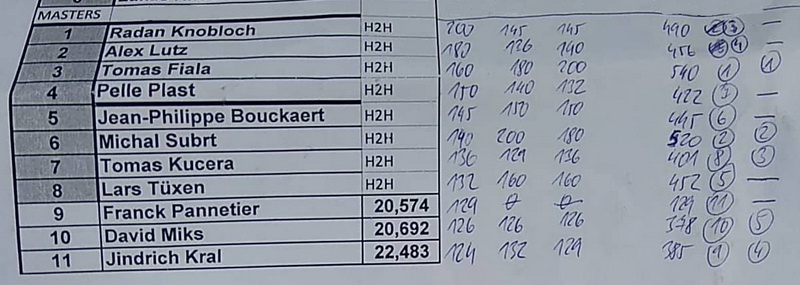 MASTERS
1 Radan Knobloch H2H 200 145 145 490 3 —
2 Alex Lutz H2H 180 126 140 456 4 —
3 Tomas Fiala H2H 160 180 200 540 1 1
4 Pelle Plast H2H 150 140 132 422 —
5 Jean-Philippe Bouckaert H2H 145 150 150 445 6 —
6 Michal Subrt H2H 140 200 180 520 2 2
7 Tomas Kucera H2H 136 129 136 401 8 3
8 Lars Tüxen H2H 132 160 160 452 5 —
9 Franck Pannetier 20,574 129 0 0 129 11 —
10 David Miks 20,692 126 126 126 378 10 5
11 Jindrich Kral 22,483 124 132 129 385 9 4